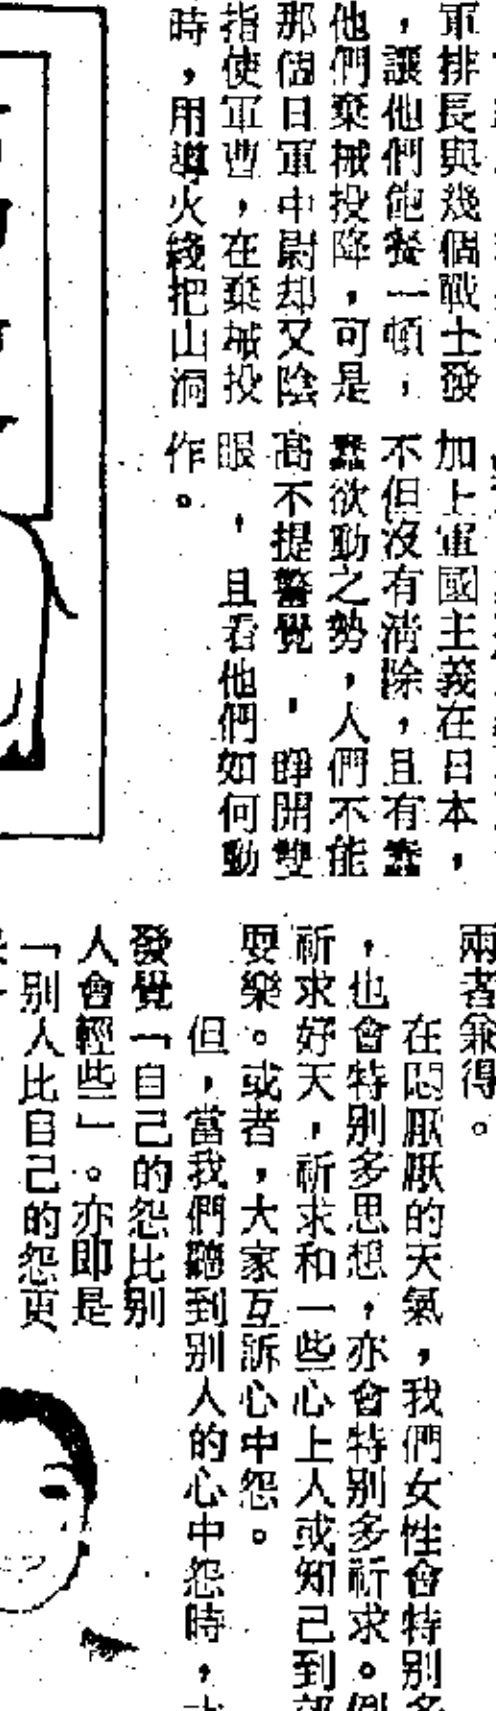 軍排長與幾個戰士發
，讓他們飽餐一頓；
他們棄械投降，可是
那個日軍中尉却又陰
指使軍曹，在棄械投
時，用導火綫把山洞
加上軍國主義在日本，
不但沒有清除，且有蠢
蠢欲動之勢，人們不能
高不提警覺，睜開雙
眼，且看他們如何動
作。
兩者兼得。
在悶厭厭的天氣，我們女性會特別多
，也會特別多思想，亦會特別多祈求。倒
祈求好天，祈求和一些心上人或知己到郊
耍樂。或者，大家互訴心中怨。
但，當我們聽到別人的心中怨時，
發覺「自己的怨比別
人會輕些」。亦即是
「別人比自己的怨更